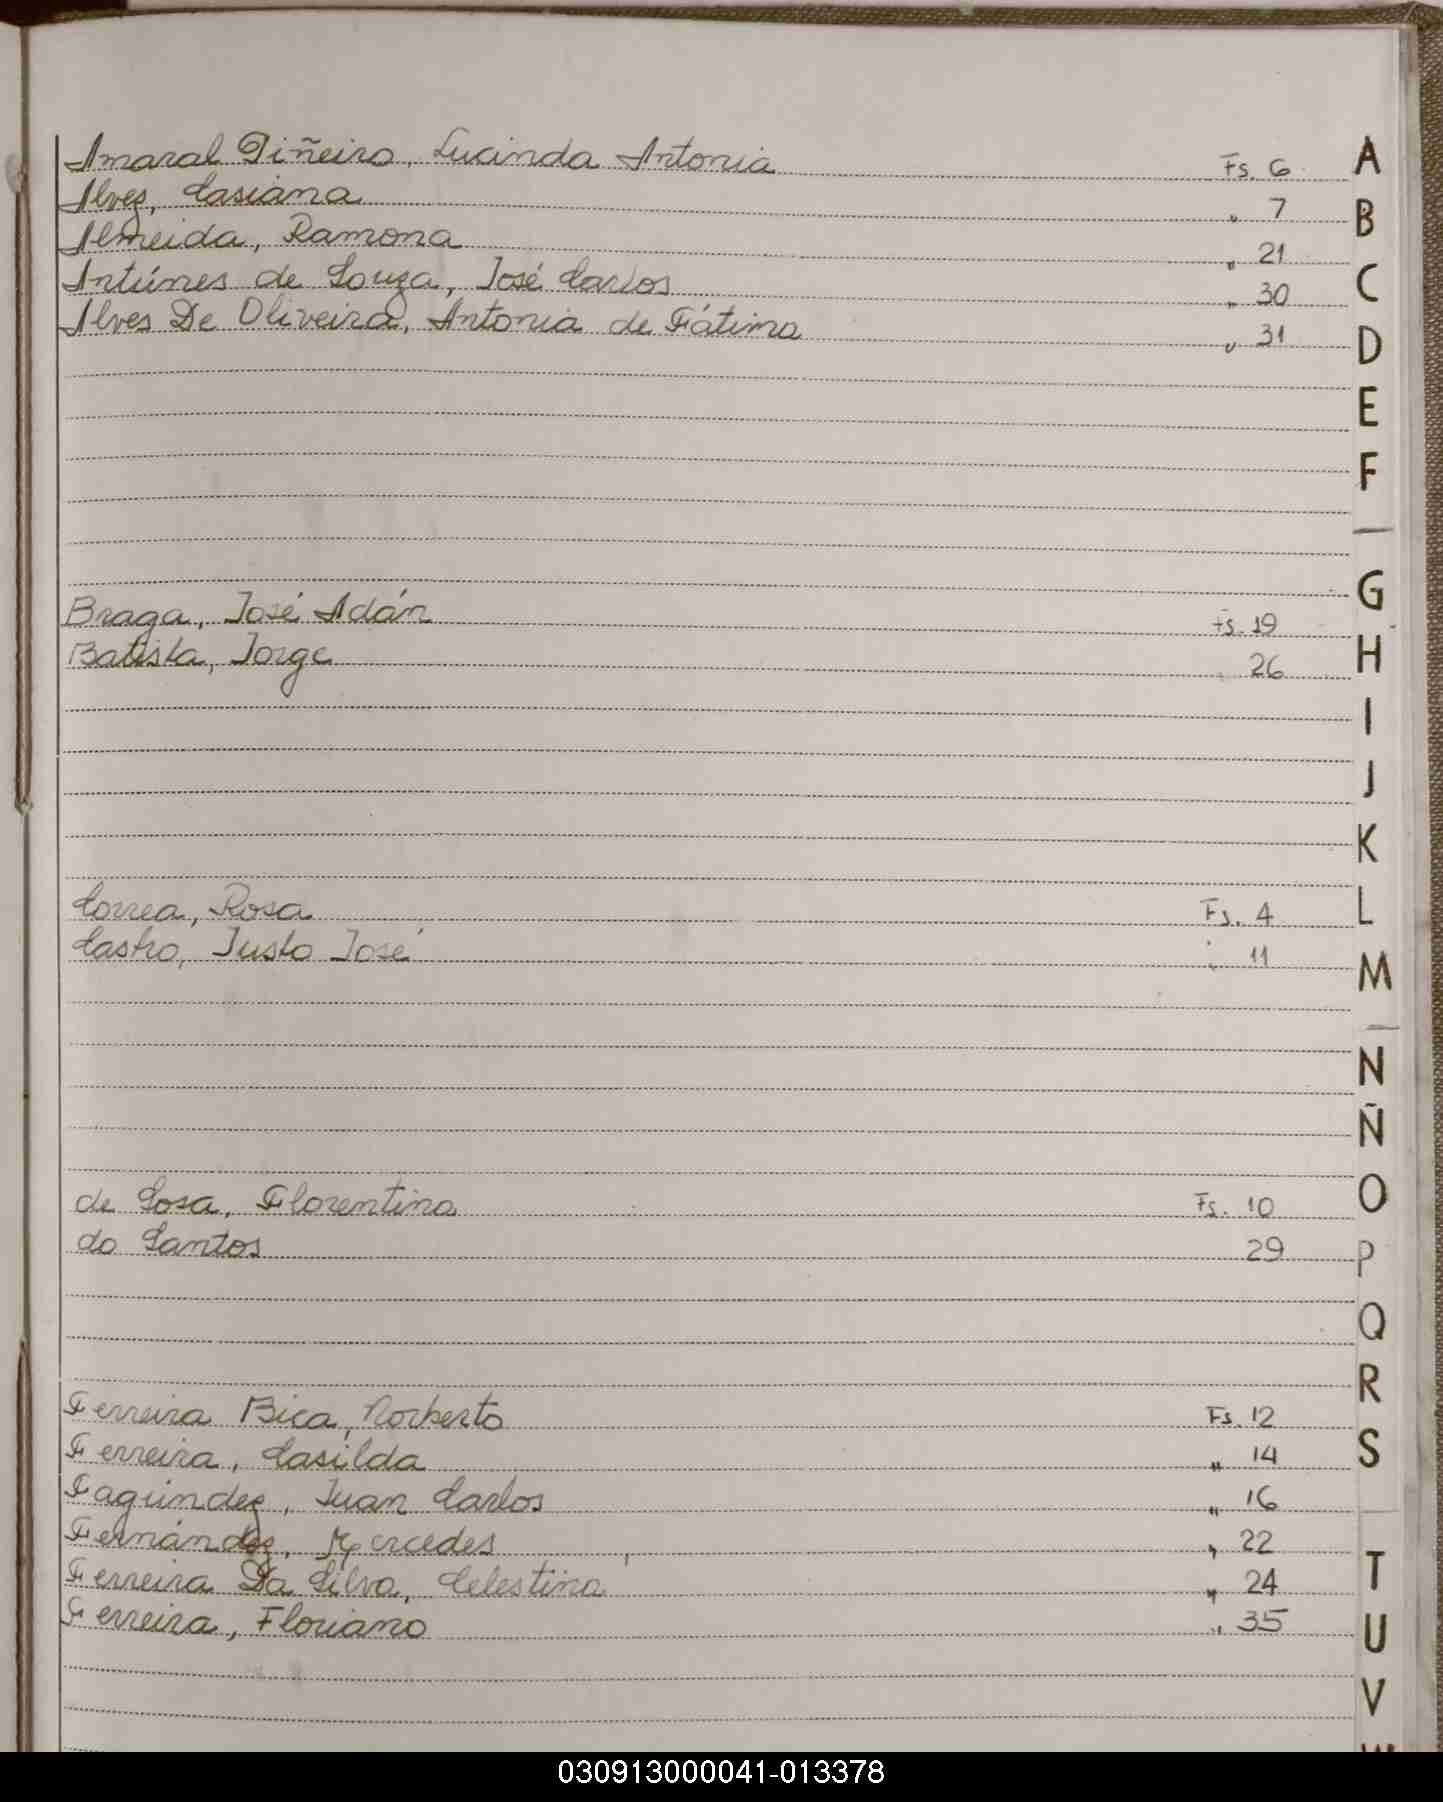 Amaral Piñeiro, Lucinda Antonia Fs. 6
Alvez, Casiana " 7
Almeida, Ramona " 21
Antúnes de Souza, José Carlos " 30
Alves De Oliveira, Antonia de Fátima " 31
Braga, José Adán Fs. 19
Batista, Jorge 26
Correa, Rosa Fs. 4
Castro, Justo José " 11
de Sosa, Florentina Fs. 10
do Santos 29
Ferreira Bica, Norberto Fs. 12
Ferreira, Casilda " 14
Fagúndez, Juan Carlos " 16
Fernández, Mercedes " 22
Ferreira Da Silva, Celestina " 24
Ferreira, Floriano " 35
A
B
C
D
E
F
G
H
I
J
K
L
M
N
Ñ
O
P
Q
R
S
T
U
V
W
030913000041-013378